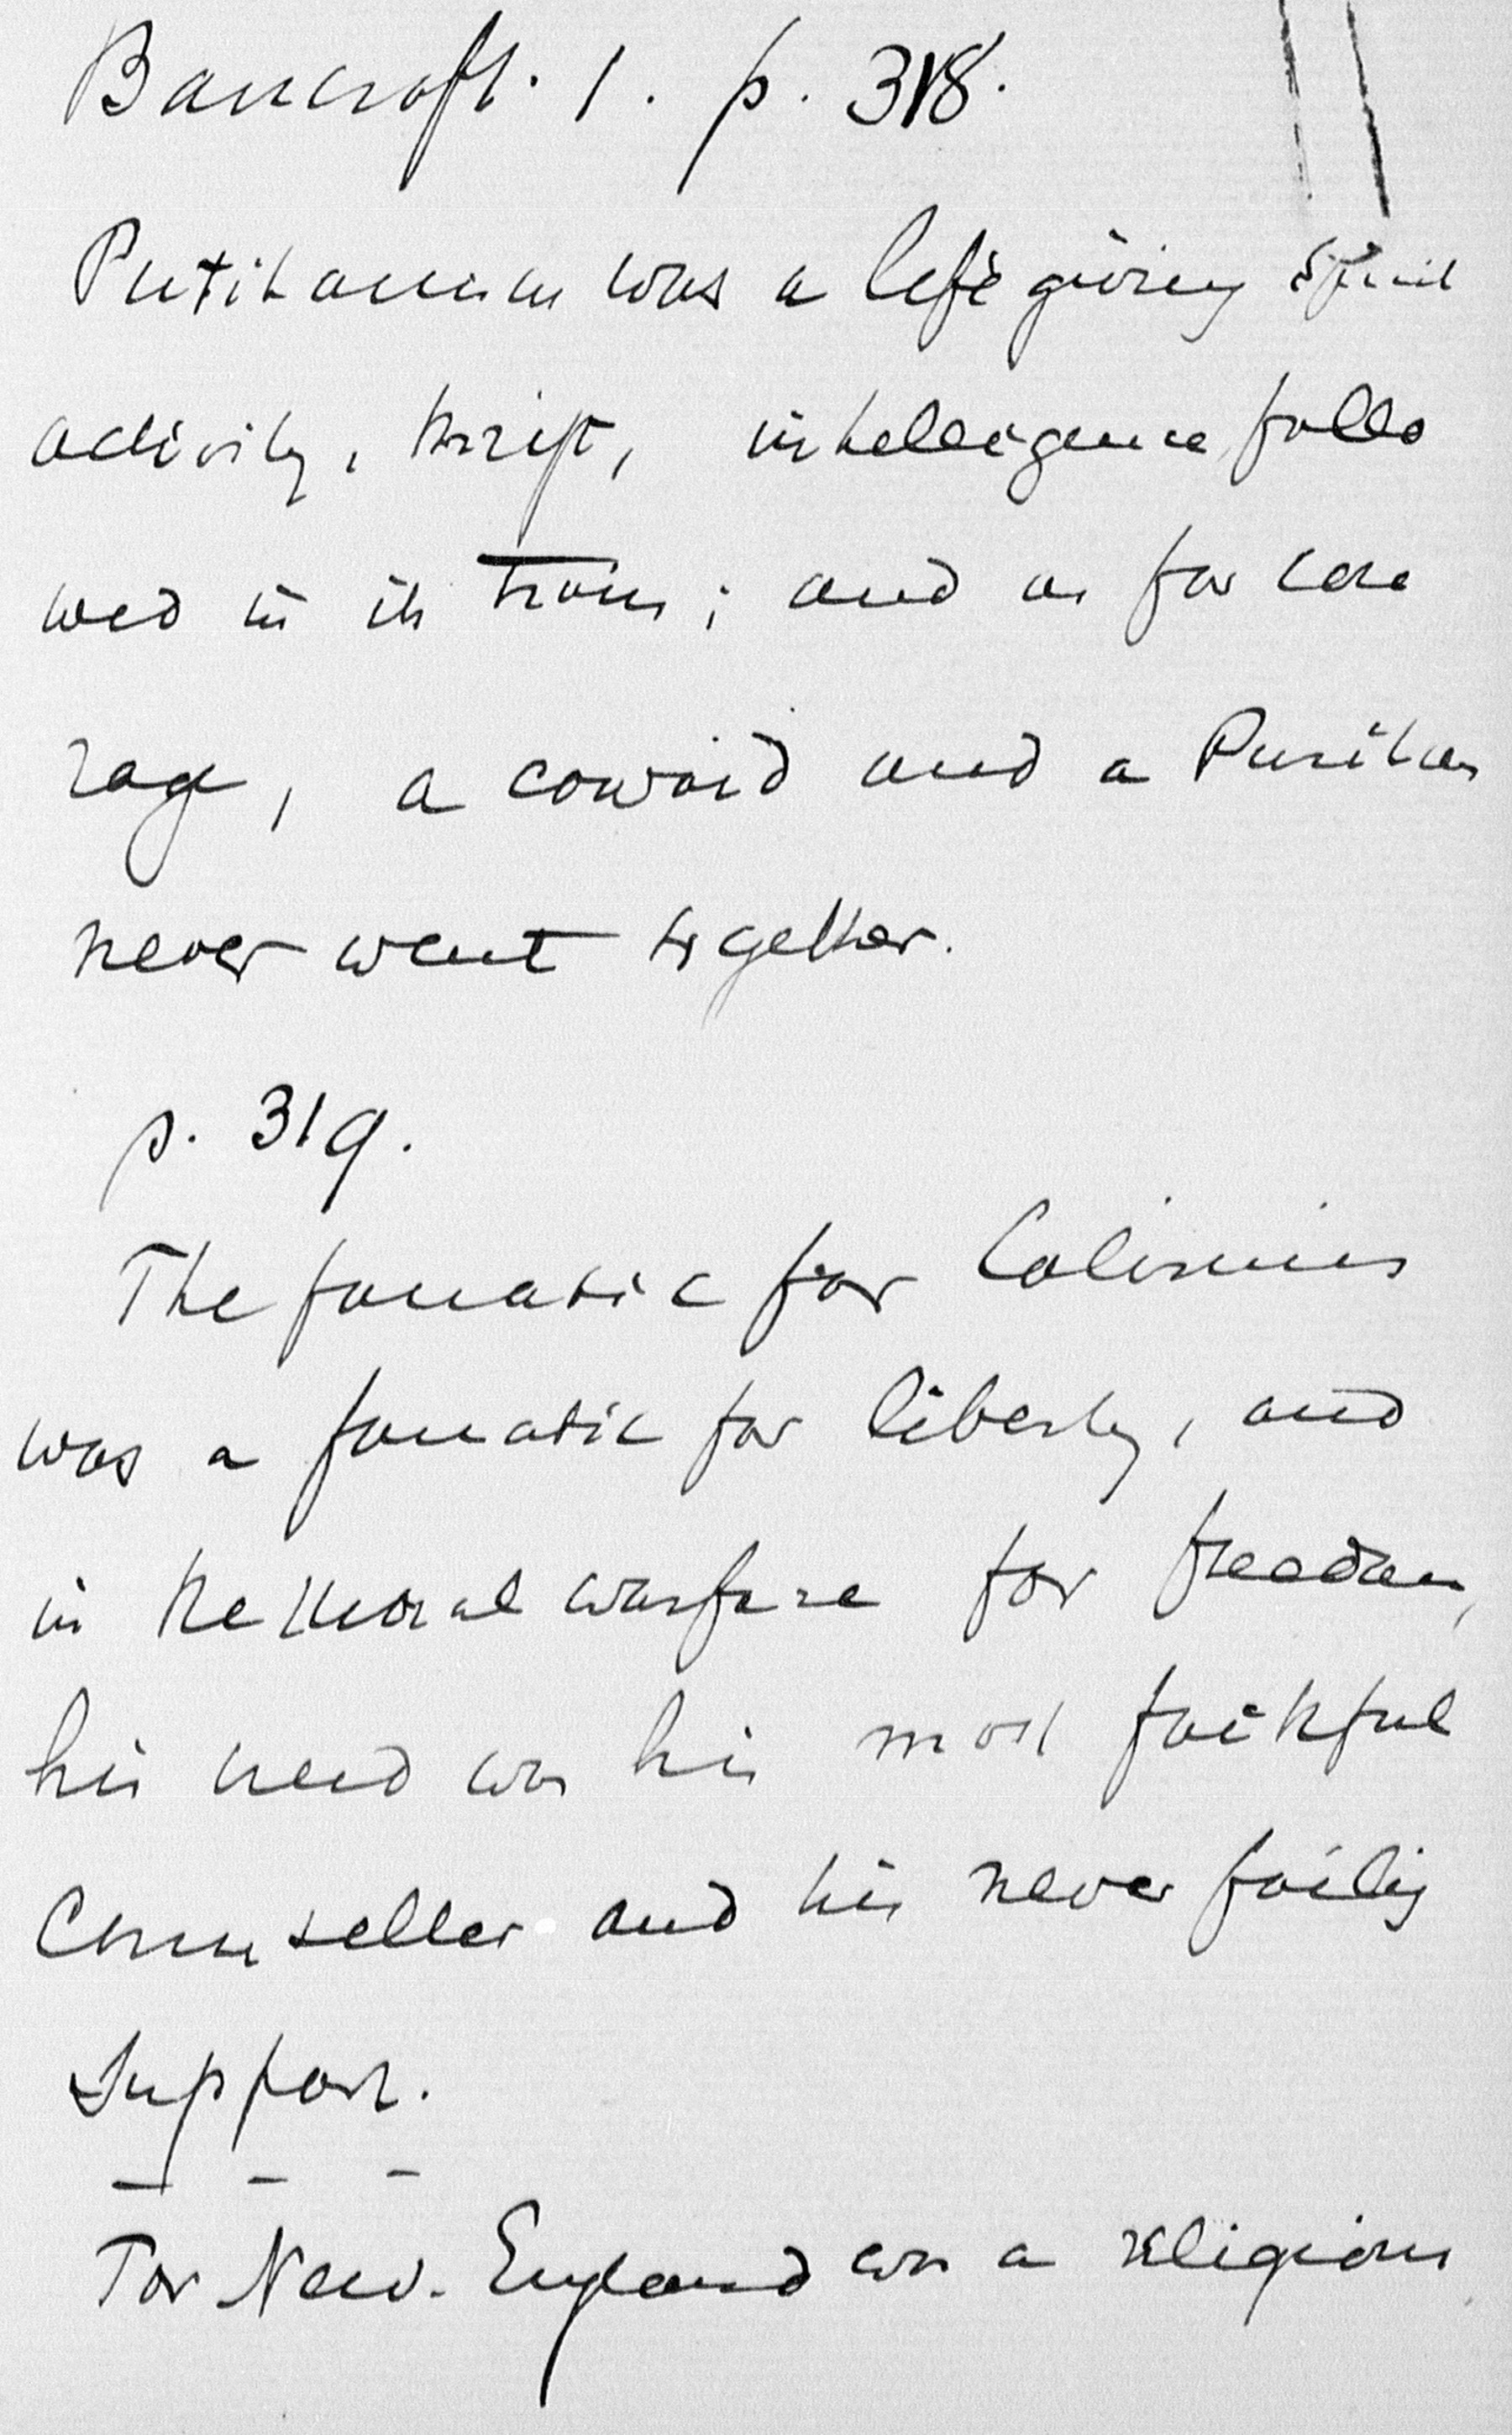 Bancroft. 1. p. 318.
Puritanism was a life giving spirit
activity, thrift, intelligence follo
wed in its train; and as for cou
rage, a coward and a Puritan
never went together.
p. 319.
The fanatic for Calvinism
was a fanatic for liberty, and
in the moral warfare for freedom,
his creed was his most faithful
Counseller and his never failing
support.
— — —
For New-England was a religious